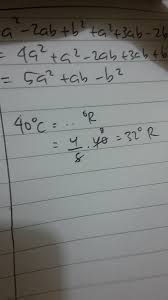 a² - 2ab + b² + a² + 3ab - 2b
= 4a² + a² - 2ab + 3ab + b
= 5a² + ab - b²
40°C = .. °R
= 4/5 . 40 8 = 32° R